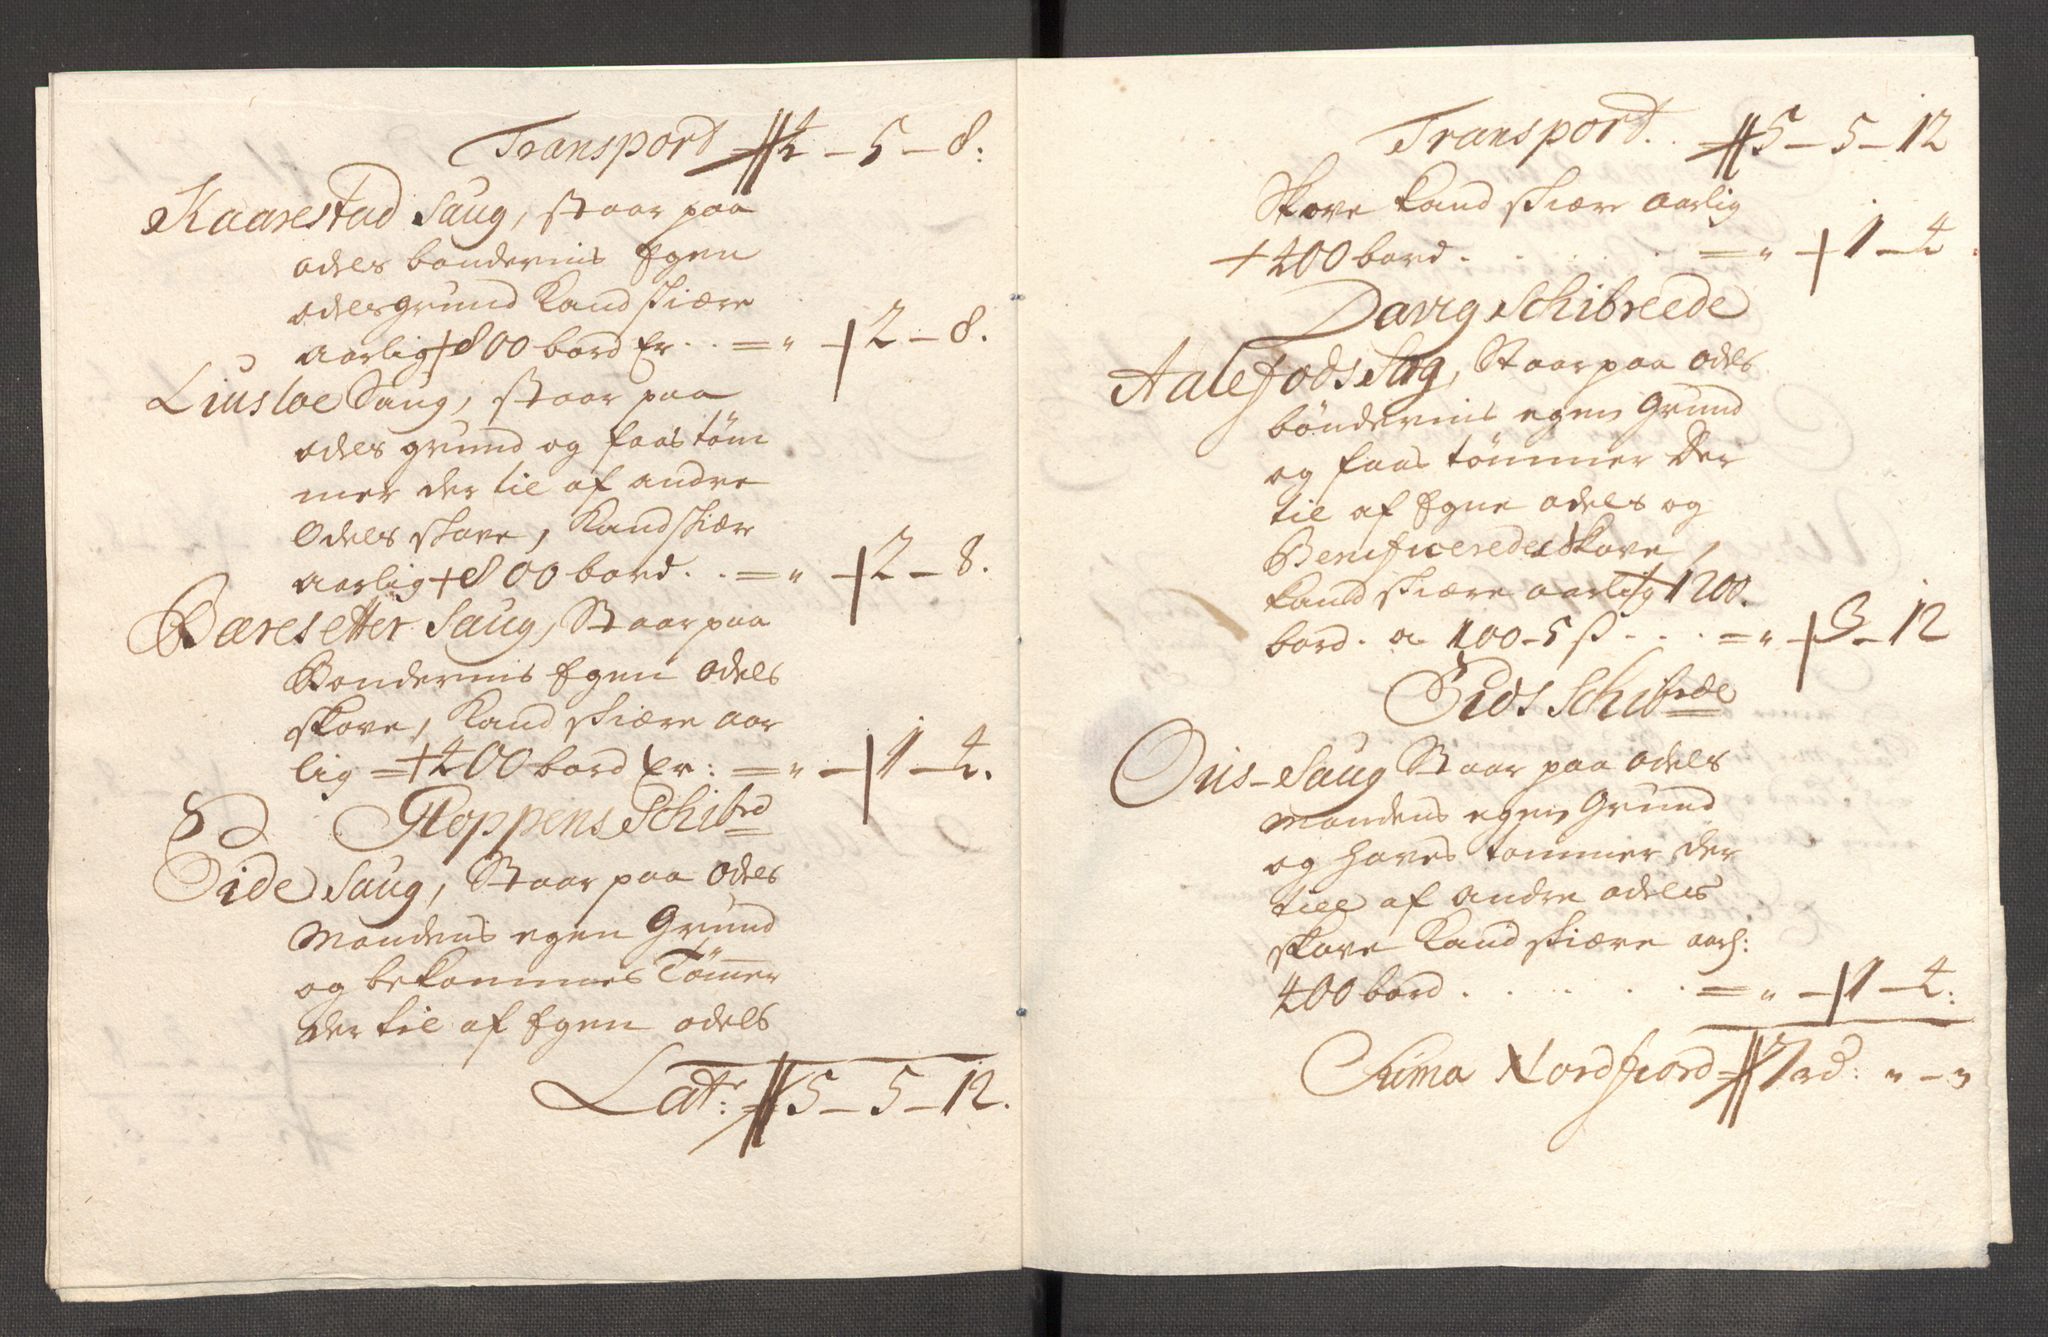 Transport 4 – 5 – 8:
Kaarestad Saug, staar paa
odels bondernis Egen
odelsgrund Kand skiære
aarlig 800 bord Er . . = " – 2 – 8.
Liusloe Saug, staar paa
odels grund og faas tøm
mer der til af andre
Odels skove, Kand skiær
aarlig 800 bord . . = " – 2 – 8.
Bæresetter Saug, Staar paa
Bondernis Egen odels
skove, Kand skiære aar
lig = 400 bord Er: = " – 1 – 4.
Gloppens Schibrd
Eide Saug, Staar paa odels
Mandens egen Grund
og bekommes Tømer
der til af Egen odels
Latr: 5 – 5 – 12.
Transport. 5 – 5 – 12
Skove kand skiære aarlig
400 bord . = " – 1 – 4
Davig Schibreede
Aalefods Sag, Staar paa odels
bøndernis egen Grund
og faas tømmer der
til af Egne odels og
Benificerede Skove,
kand skiære aarlig 1200.
bord. a 100 – 5 ß . . . = " – 3 – 12
Eids Schibrede
Ous – Saug Staar paa odels
Mandens egen Grund
og haves tømmer der
till af andre odels
skove Kand skiære aarl:
400 bord . . . . . = " – 1 – 4:
Suma Nordfiord 7 rd: " – "